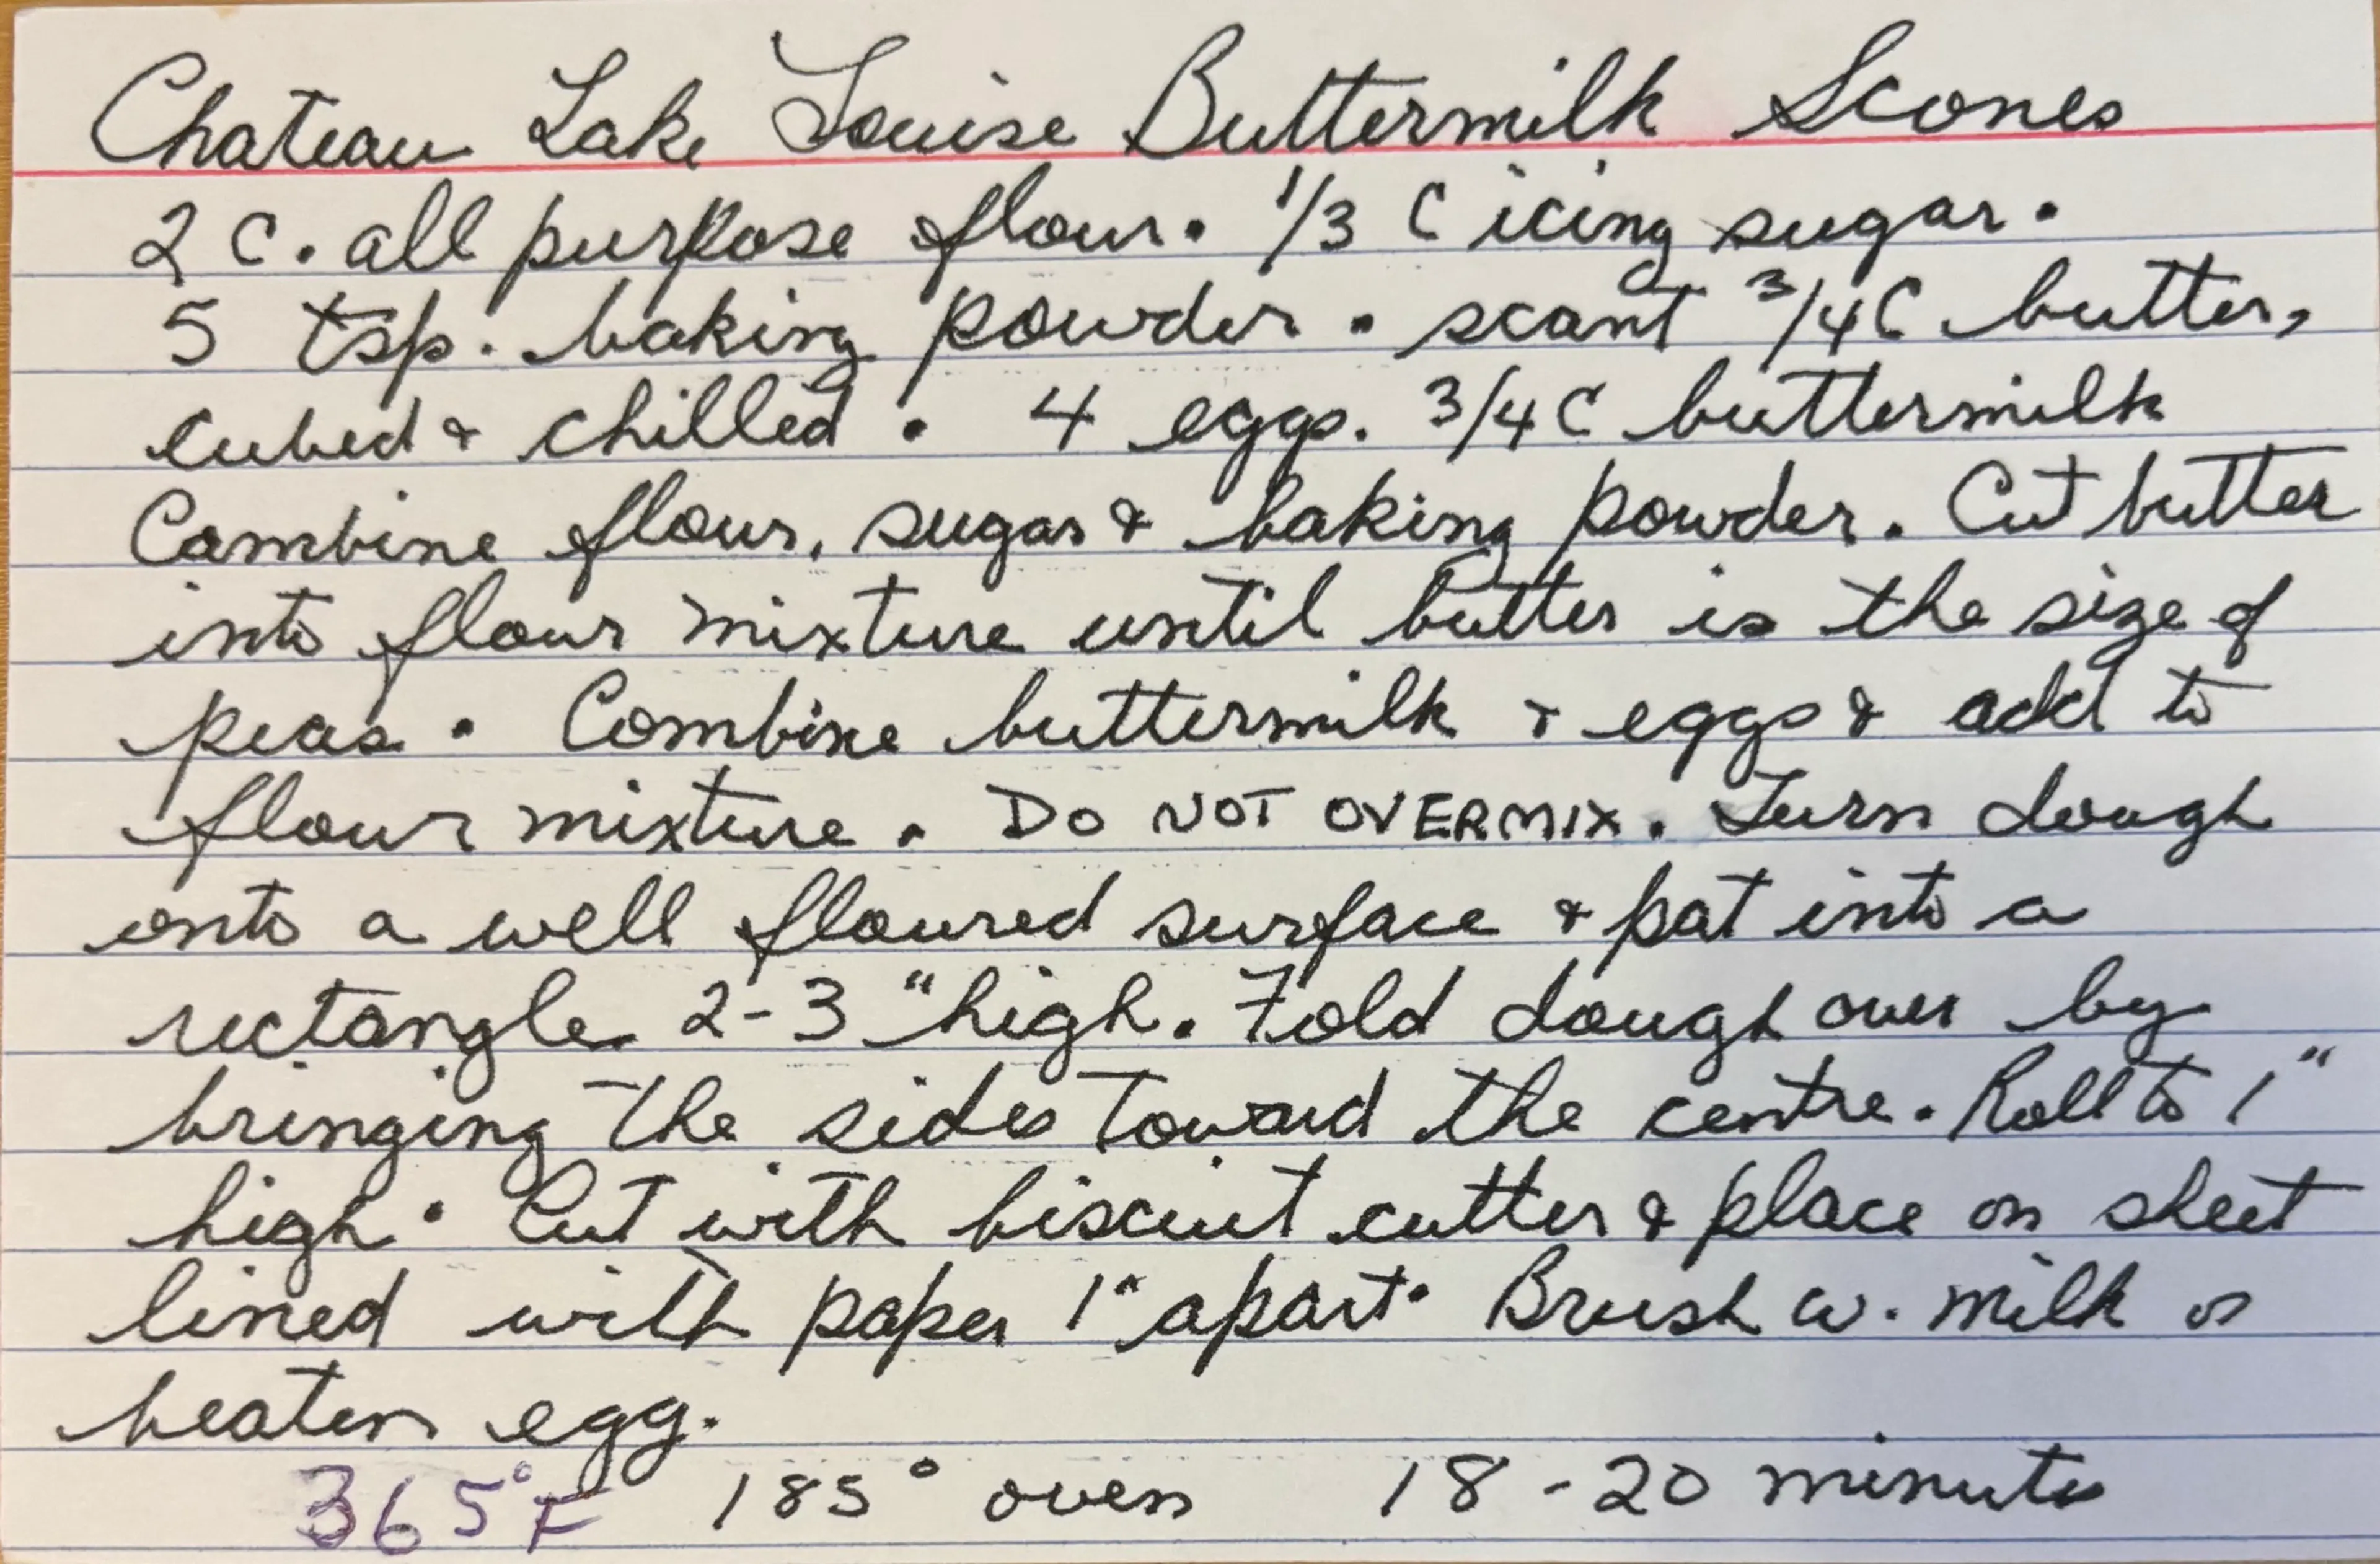 Chateau Lake Louise Buttermilk Scones
2 C. all purpose flour. 1/3 C icing sugar.
5 tsp. baking powder. scant 3/4 C butter,
cubed & chilled. 4 eggs. 3/4 C buttermilk
Combine flour, sugar & baking powder. Cut butter
into flour mixture until butter is the size of
peas. Combine buttermilk & eggs & add to
flour mixture. DO NOT OVERMIX. Turn dough
onto a well floured surface & pat into a
rectangle 2-3" high. Fold dough over by
bringing the sides toward the centre. Roll to 1"
high. Cut with biscuit cutter & place on sheet
lined with paper 1" apart. Brush w. milk or
beaten egg.
365°F 185° oven 18-20 minutes